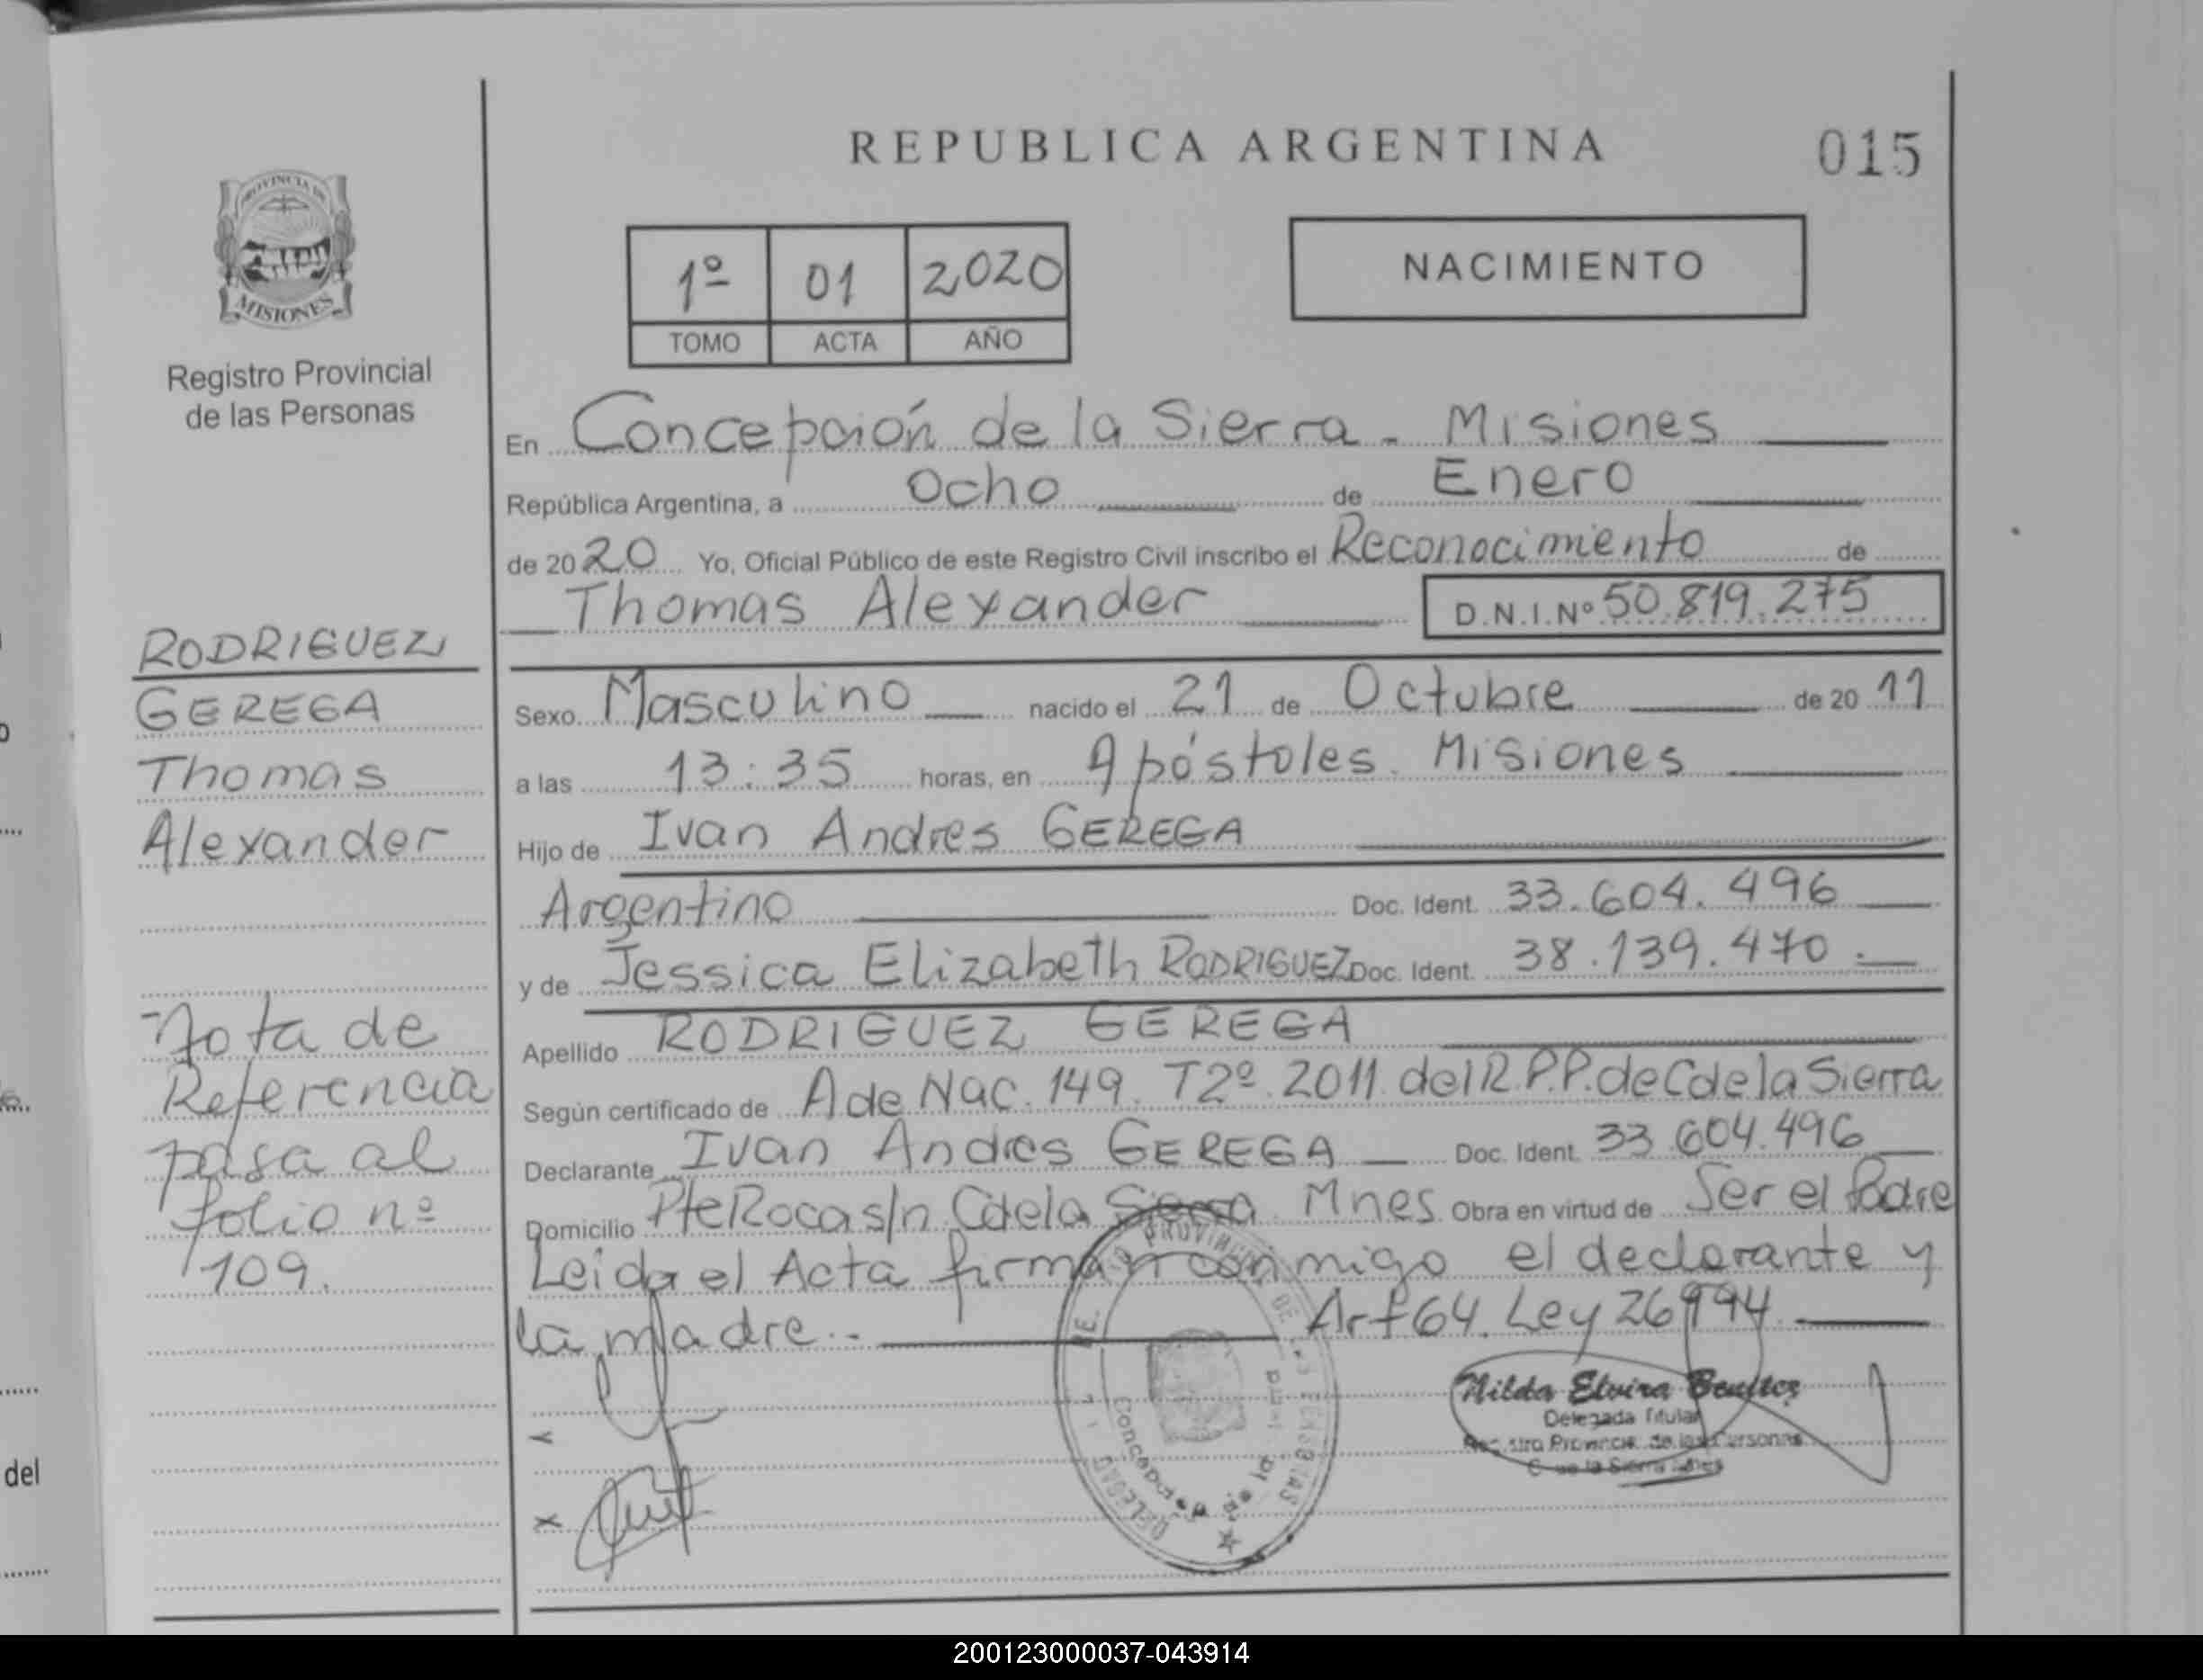 REPUBLICA ARGENTINA
015
PROVINCIA DE
MISIONES
Registro Provincial
de las Personas
1º 01 2020
TOMO ACTA AÑO
NACIMIENTO
En Concepción de la Sierra - Misiones
República Argentina, a Ocho de Enero
de 2020 Yo, Oficial Público de este Registro Civil inscribo el Reconocimiento de
Thomas Alexander D.N.I.Nº 50.819.275
RODRIGUEZ
GEREGA
Thomas
Alexander
Sexo Masculino nacido el 21 de Octubre de 2011
a las 13:35 horas, en Apóstoles. Misiones
Hijo de Ivan Andres GEREGA
Argentino Doc. Ident. 33.604.496
y de Jessica Elizabeth RODRIGUEZ Doc. Ident. 38.139.470.
Apellido RODRIGUEZ GEREGA
Según certificado de A de Nac. 149. T2º. 2011 del R.P.P. de C de la Sierra
Declarante Ivan Andres GEREGA Doc. Ident. 33.604.496
Domicilio Pte Roca s/n. C de la Sierra. Mnes. Obra en virtud de Ser el Padre
Leida el Acta firman conmigo el declarante y
la madre.- Art 64. Ley 26994
Nota de
Referencia
pasa al
folio nº
109.
Nilda Elvira Benitez
Delegada Titular
Registro Provincial de las Personas
C. de la Sierra Mnes
del
200123000037-043914